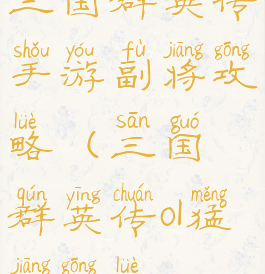 三国群英传
shǒu yóu fù jiāng gōng
手游副将攻
lüè sān guó
略（三国
qún yīng chuán měng
群英传ol猛
jiāng gōng lüè